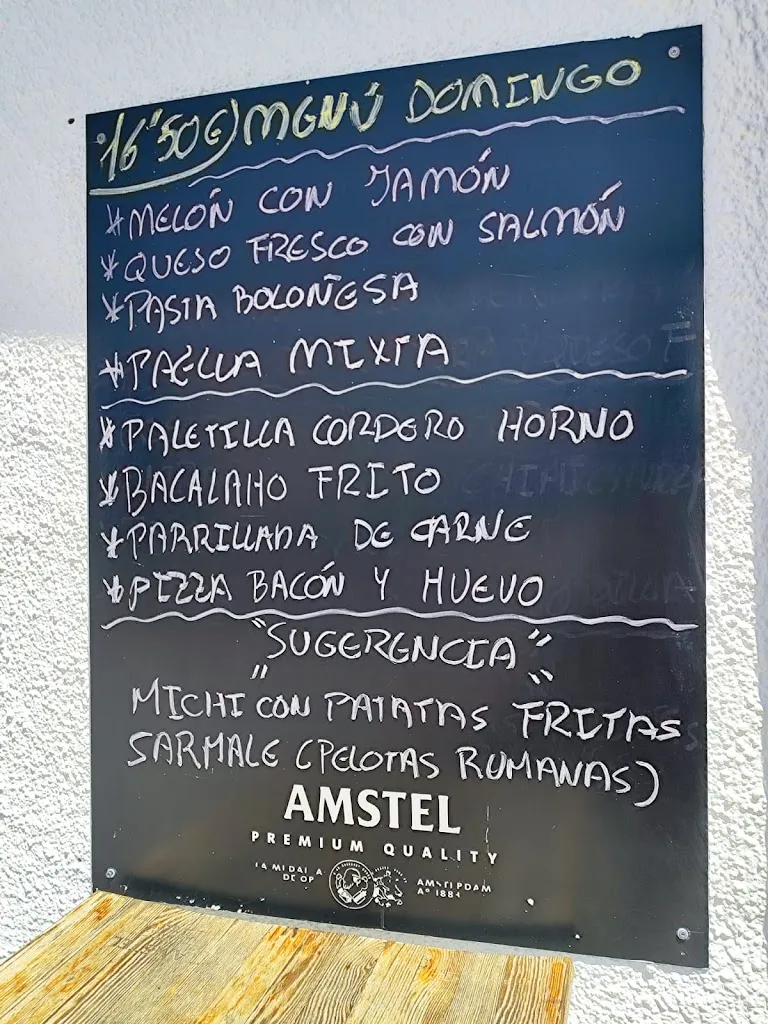 16"50€) MENÚ DOMINGO
*MELÓN CON JAMÓN
*QUESO FRESCO CON SALMÓN
*PASTA BOLOÑESA
*PAELLA MIXTA
*PALETILLA CORDERO HORNO
*BACALAHO FRITO
*PARRILLADA DE CARNE
*PIZZA BACÓN Y HUEVO
"SUGERENCIA"
MICHI CON PATATAS FRITAS
SARMALE (PELOTAS RUMANAS)
AMSTEL
PREMIUM QUALITY
AMSTERDAM
Aº 1884